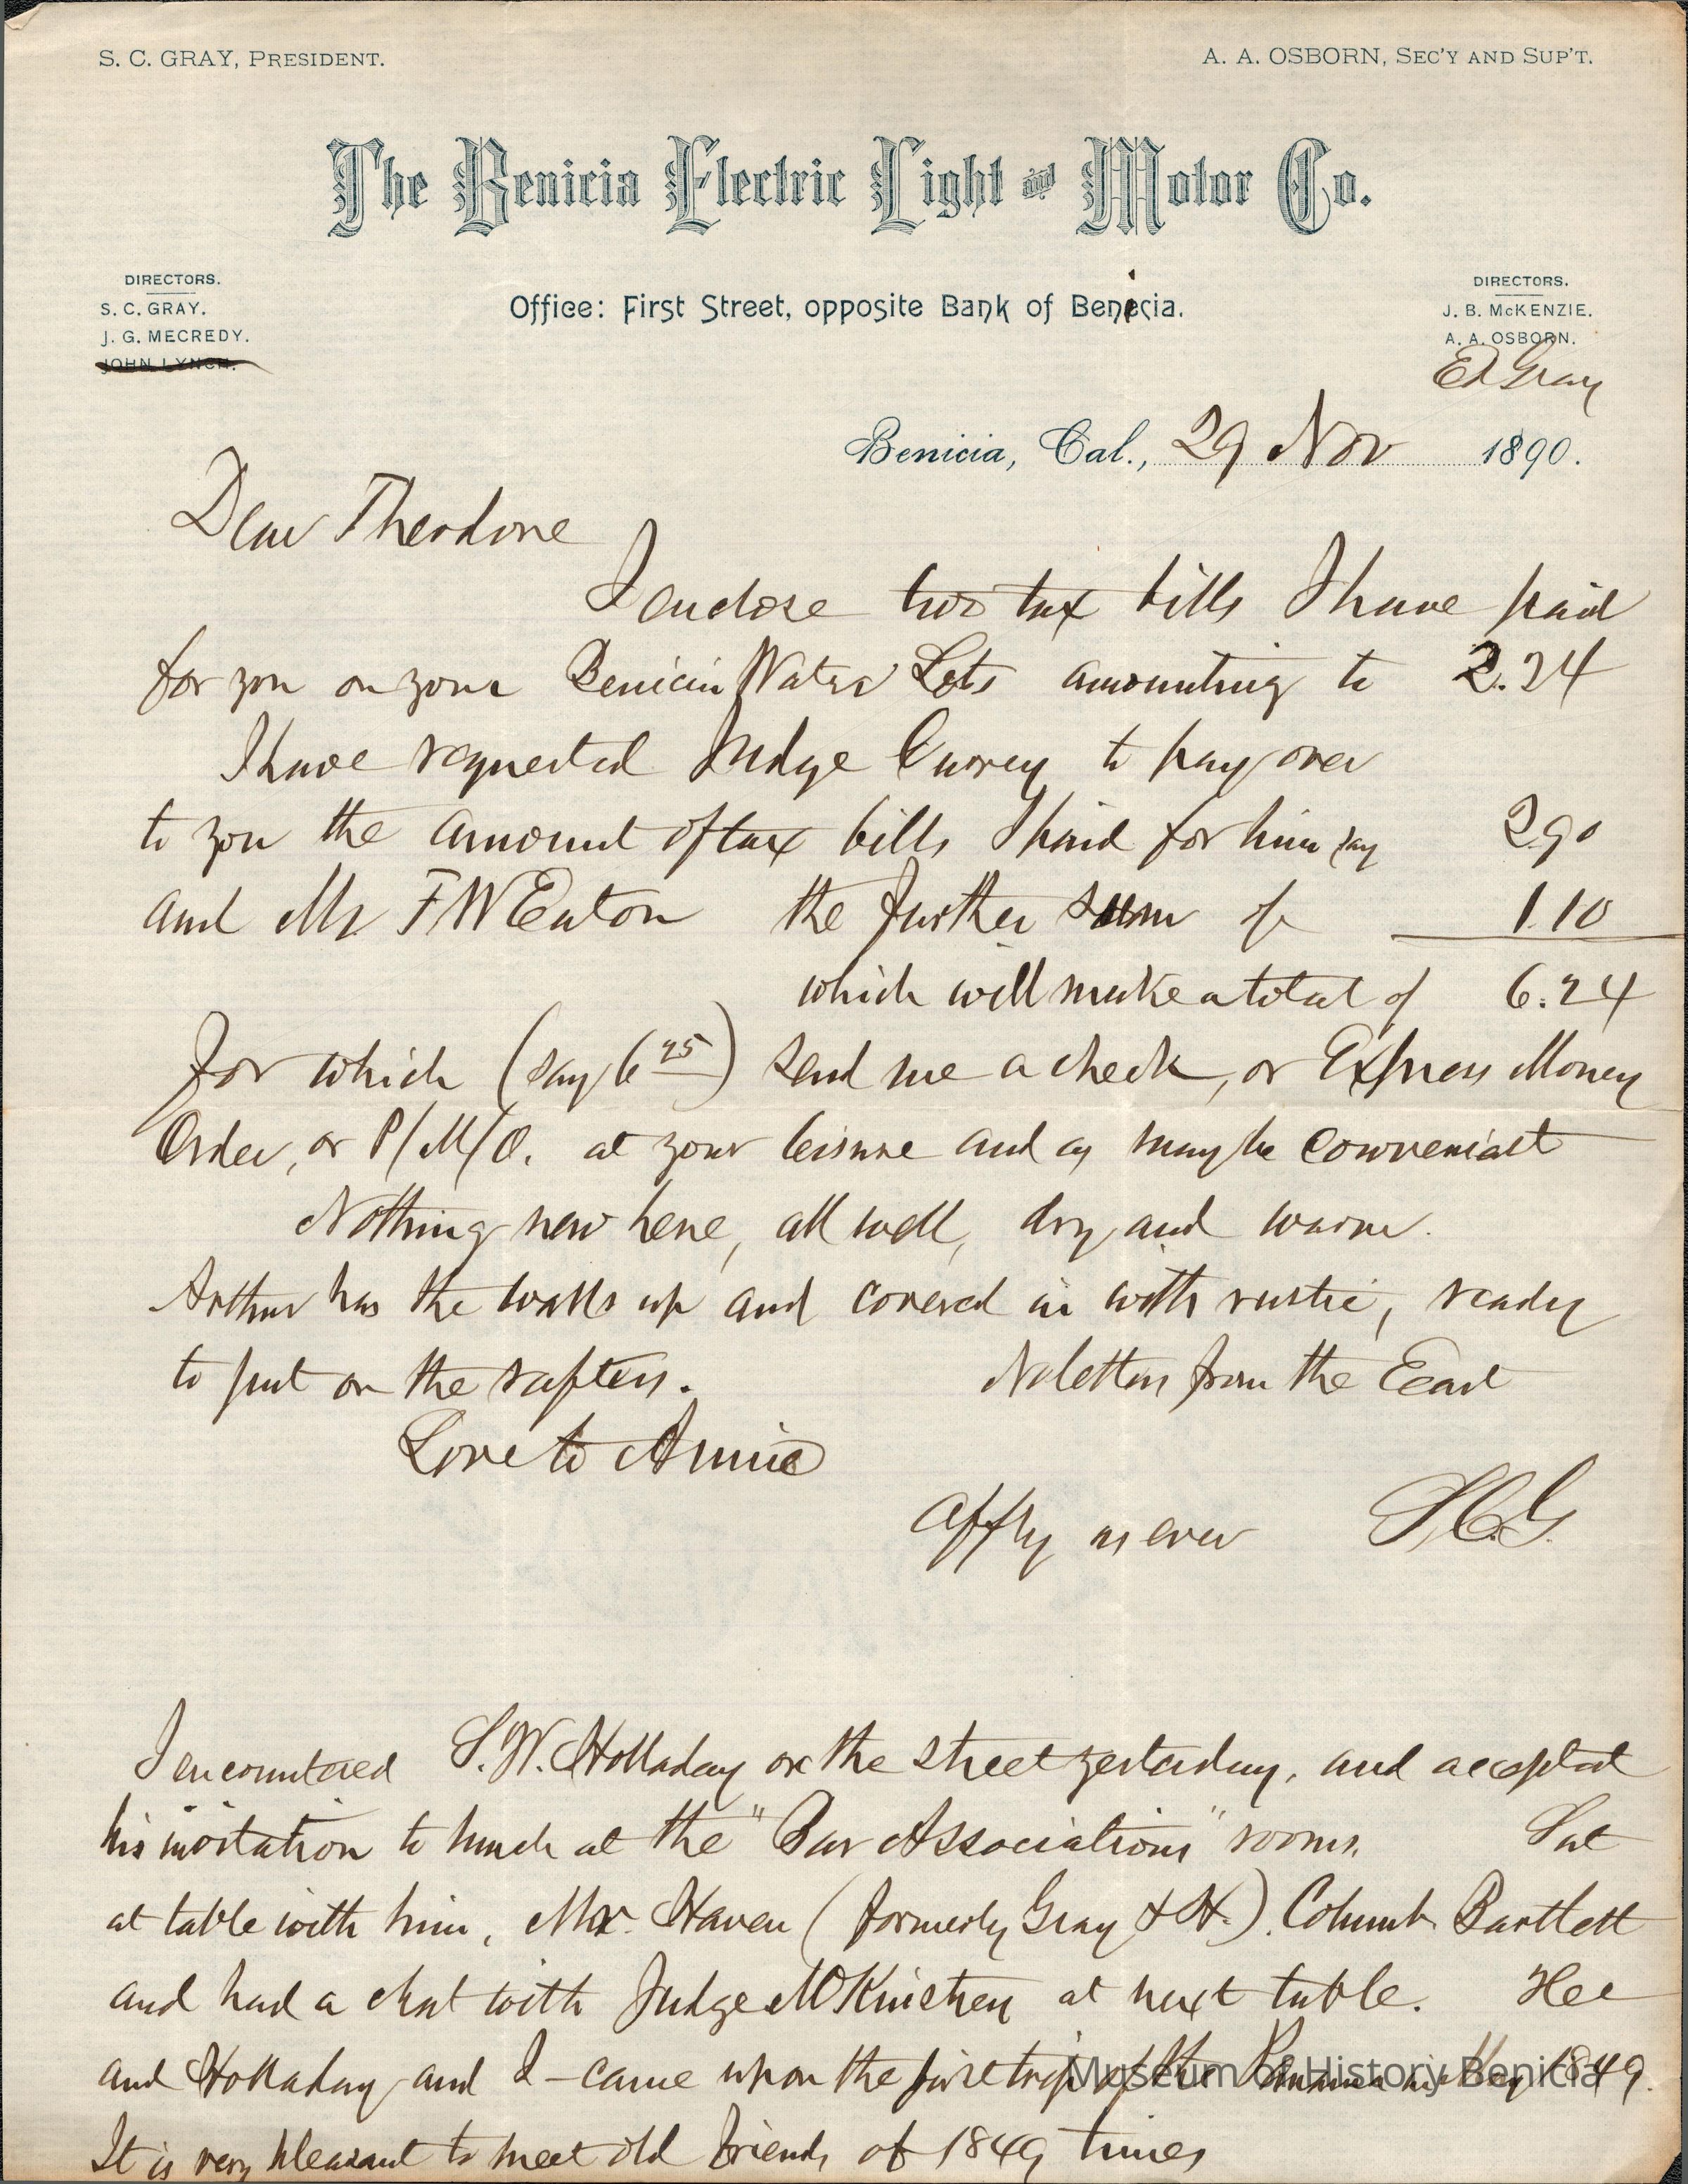 S. C. GRAY, PRESIDENT.
A. A. OSBORN, SEC'Y AND SUP'T.
The Benicia Electric Light and Motor Co.
DIRECTORS.
S. C. GRAY.
J. G. MECREDY.
JOHN LYNCH.
Office: First Street, opposite Bank of Benicia.
DIRECTORS.
J. B. McKENZIE.
A. A. OSBORN.
Ed Gray
Benicia, Cal., 29 Nov 1890.
Dear Theodore
I enclose two tax bills I have paid
for you on your Benicia Water Lots amounting to 2.24
I have requested Judge Currey to pay over
to you the amount of tax bills I paid for him say 290
and Mr F W Eaton the further sum of 1.10
which will make a total of 6.24
for which (say 6 25) send me a check, or Express Money
Order, or P/M/O. at your leisure and as may be convenient
Nothing new here, all well, dry and warm.
Arthur has the walls up and covered in with rustic, ready
to put on the rafters. No letters from the East
Love to Annie
Affly as ever S.C.G.
I encountered S. W. Holladay on the street yesterday, and accepted
his invitation to lunch at the "Bar Associations" rooms. Sat
at table with him, Mr. Haven (formerly Gray & H.). Columb. Bartlett
and had a chat with Judge McKinstrey at next table. Hee
and Holladay and I - came upon the first trip of the Panama in May 1849.
It is very pleasant to meet old friends of 1849 times
Museum of History Benicia